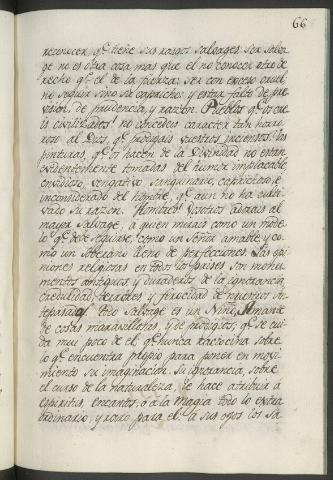 66
reconocer, qe. tiene sus rasgos salvages. Ser salva
ge no es otra cosa mas que el no conocer otro de
recho qe. el de la fuerza: ser con exceso cruel
no seguir sino su capricho: y estar falto de pre
vision, de prudencia, y razon. Pueblos qe. os cre
eis civilizados! no concedeis caracter tan horro
roso al Dios, qe. prodigais vuestros inciensos? las
pinturas, qe. os hacen de la Divinidad no estan
evidentemente tomadas del humor implacable,
envidioso, vengativo, sanguinario, caprichoso, e
inconsiderado del hombre, qe. aun no ha culti
vado su razon. Hombres! Vosotros adorais al
mayor salvage, a quien mirais como un mode
lo qe. debe seguirse, como un Señor amable y co
mo un soberano lleno de perfecciones. Las opi
niones religiosas en todos los países son monu
mentos antiguos y duraderos de la ignorancia,
credulidad, terrores y ferocidad de nuestros an
tepasados. Todo salvage es un Niño Amante
de cosas maravillosas, y de prodigios, qe. se cui
da muy poco de él qe. nunca raciocina sobre
lo qe. encuentra propio para poner en movi
miento su imaginacion. Su ignorancia, sobre
el curso de la naturaleza, le hace atribuir á
espiritus, encantos, ó a la magia todo lo extra
ordinario, y raro, para el: a sus ojos los Sa